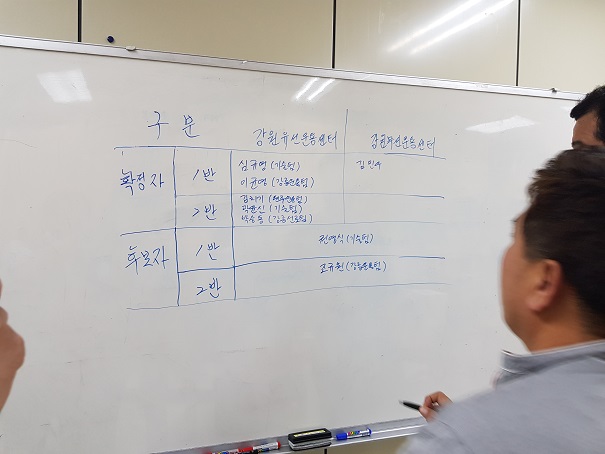 구 분 강원유선운용센터 강원무선운용센터
확정자 1반 심규영 (기술팀) 김인수
이균영 (강릉운용팀)
2반 (원주운용팀)
(기술팀)
박승동 (강릉선로팀)
후보자 1반 전영식 (기술팀)
2반 조규원 (강릉운용팀)